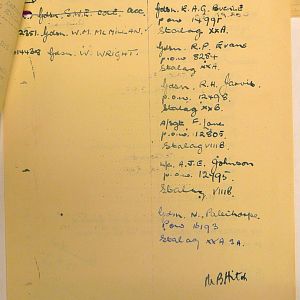 Gdsm. S.W.E. Cole.
2351. Gdsm. W.M. McMillan.
Gdsm. W. Wright.
Gdsm. R.A.G.
P.O.W 14995
Stalag XXA.
Gdsm. R.P. Evans
P.O.W 8284
Stalag XXA.
Gdsm. R.H. Jarvis.
P.O.W. 12498.
Stalag XXB.
A/Sgt F. Lane
P.O.W. 12805.
Stalag VIIIB.
A.J.E. Johnson
P.O.W. 12495
Stalag VIIIB.
Gdsm. N. Palethorpe.
POW 16193
Stalag XXA 2A.